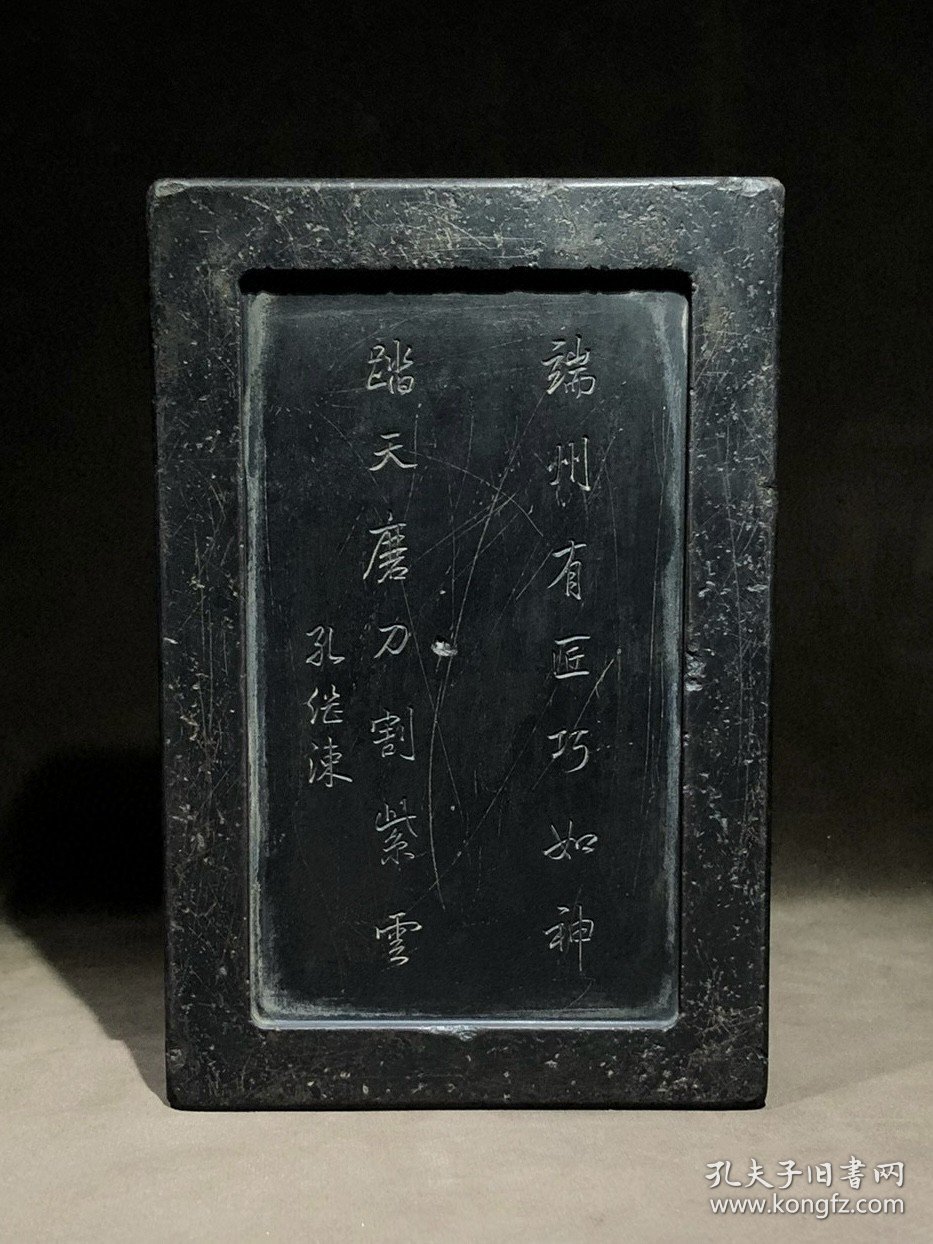 端州有匠巧如神
踏天磨刀割紫雲
孔继涑
孔夫子旧書网
www.kongfz.com